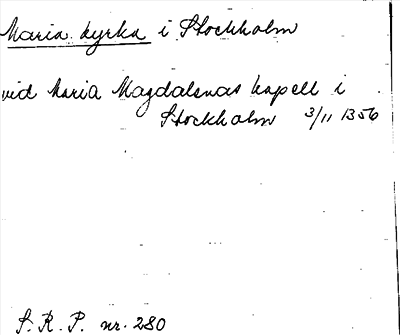 Maria kyrka i Stockholm
vid Maria Magdalenas kapell i
Stockholm 3/11 1356
S. R. P. nr. 280